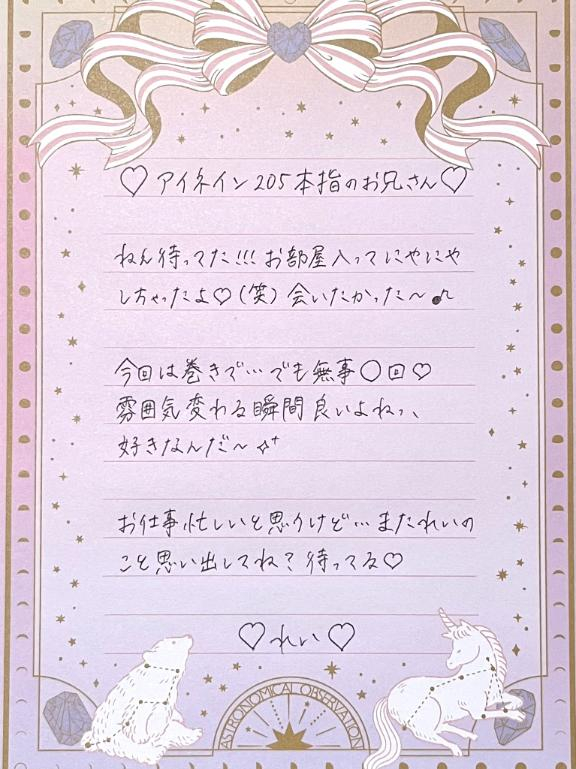 ♡アイネイン205本指のお兄さん♡
ねん待ってた!!!お部屋入ってにやにや
しちゃったよ♡(笑)会いたかった〜♪
今回は巻きで…でも無事○回♡
雰囲気変わる瞬間良いよねっ、
好きなんだ〜✧⁺
お仕事忙しいと思うけど…またれいの
こと思い出してね?待ってる♡
♡れい♡
ASTRONOMICAL OBSERVATION